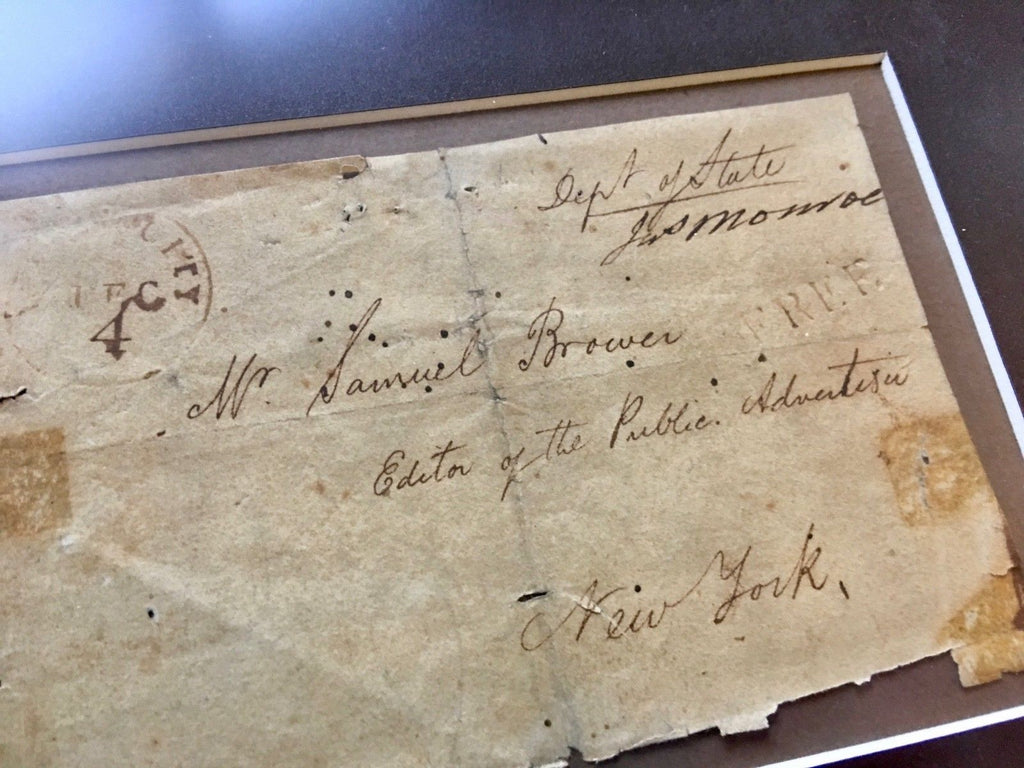 Dept of State
Jas Monroe
FREE
Mr. Samuel Brower
Editor of the Public Advertiser
New York.